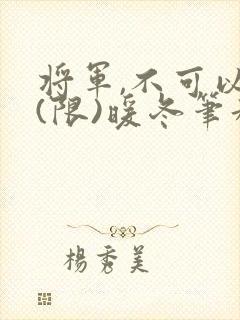 將軍,不可以
(限)暖冬筆
楊秀美